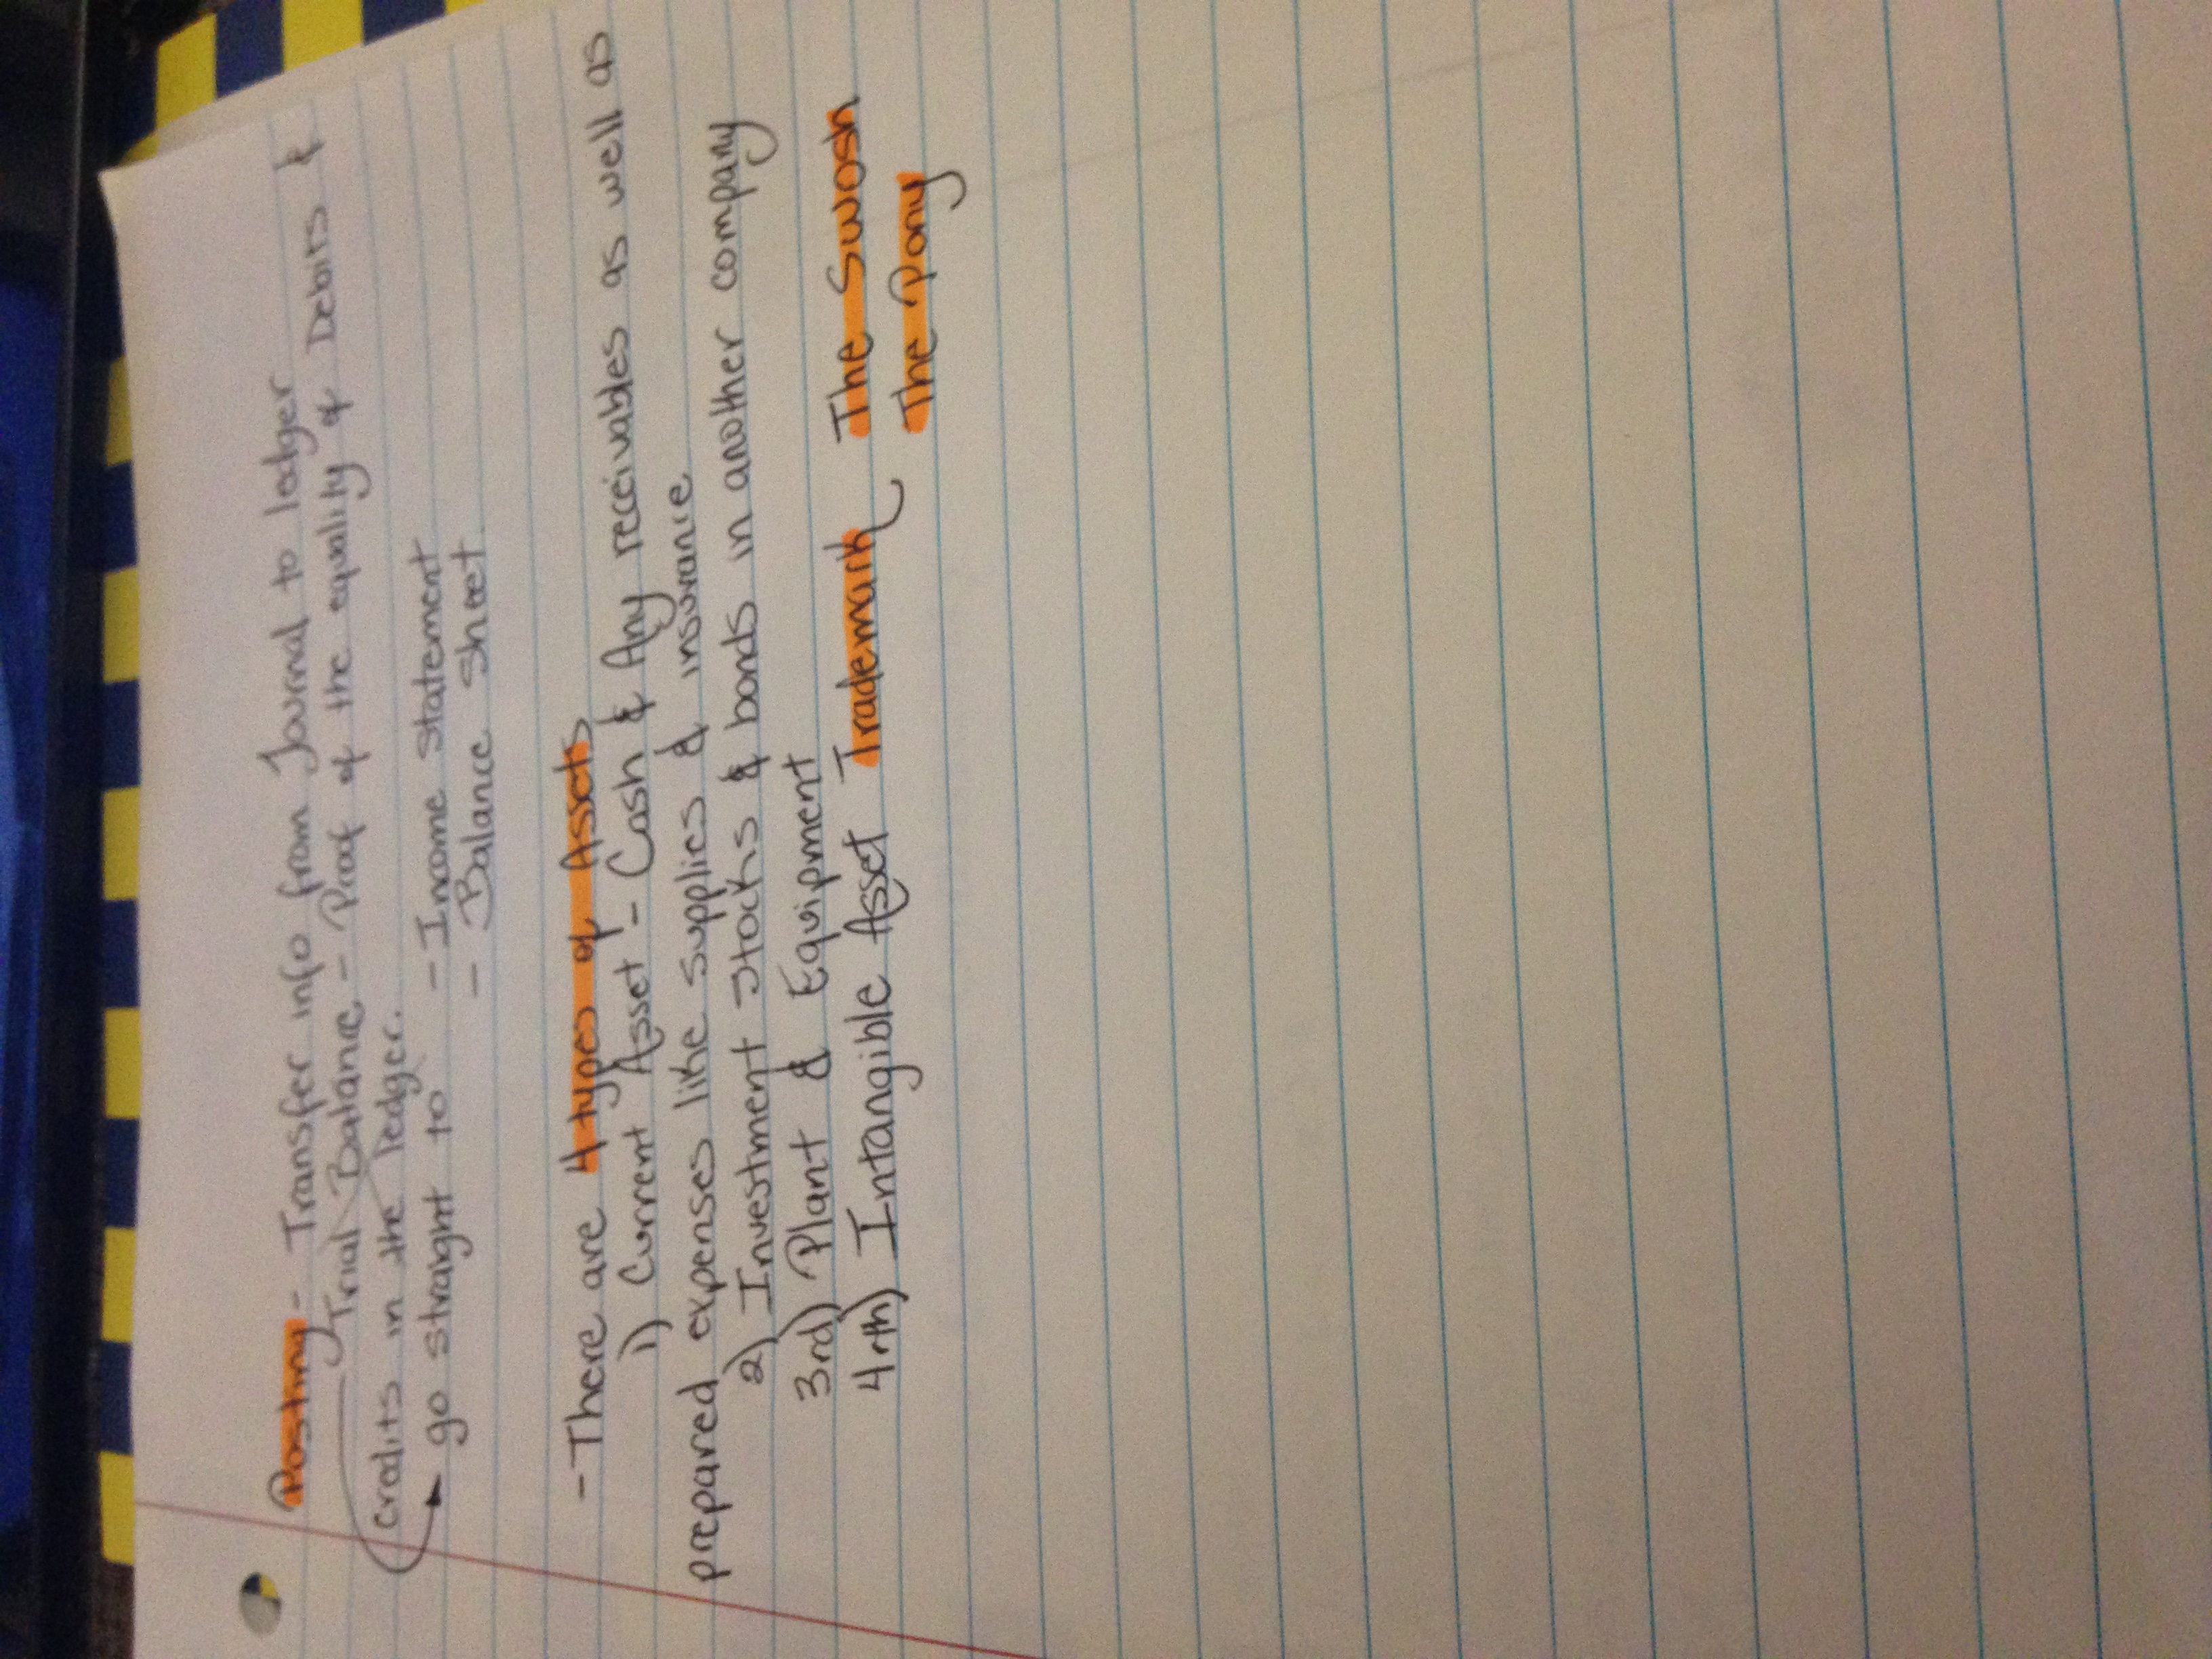 Posting - Transfer info from Journal to ledger
Trial Balance - Proof of the equality of Debits &
credits in the ledger.
go straight to - Income statement
- Balance sheet
- There are 4 types of Assets
1) Current Asset - Cash & Any receivables as well as
prepared expenses like supplies & insurance
2) Investment stocks & bonds in another company
3rd) Plant & Equipment
4rth) Intangible Asset Trademark The Swosh
The Pony